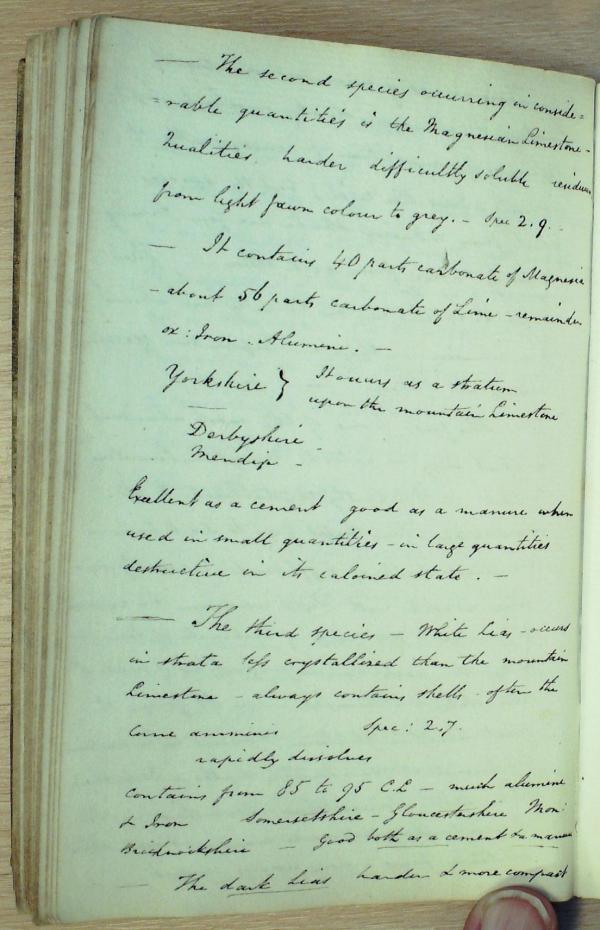 — The second species occurring in conside=
=rable quantities is the Magnesian Limestone -
Qualities. harder difficultly soluble residuum
from light fawn colour to grey. - Spec 2.9. -
— It contains 40 parts carbonate of Magnesia
- about 56 parts carbonate of Lime - remainder
ox: Iron . Alumine. —
Yorkshire } It occurs as a stratum
upon the mountain Limestone
Derbyshire
Mendip -
Excellent as a cement good as a manure when
used in small quantities - in large quantities
destructive in its calcined state. —
— The third species - White Lias - occurs
in strata less crystallized than the mountain
Limestone - always contains shells often the
Spec: 2.7.
rapidly dissolves
contains from 85 to 95 C.L - much alumine
& Iron Somersetshire - Gloucestershire Mon:
Brecknockshire — Good both as a cement & a manure
— The dark Lias harder & more compact